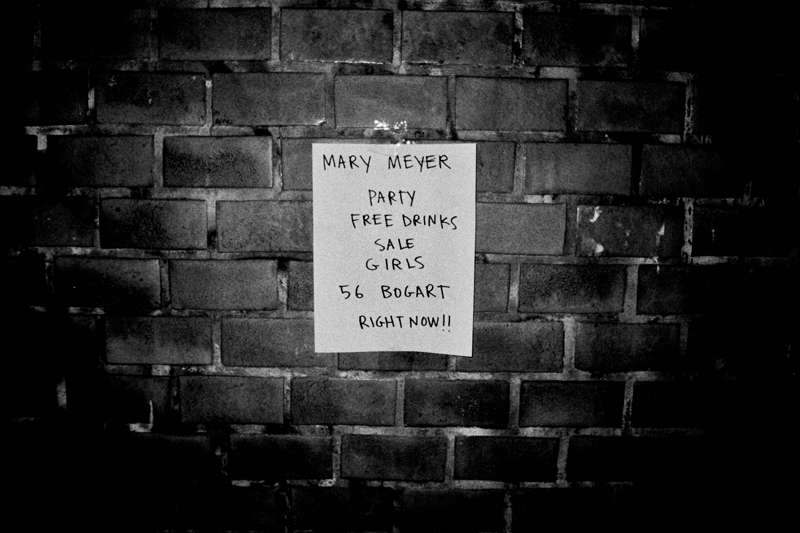 MARY MEYER
PARTY
FREE DRINKS
SALE
GIRLS
56 BOGART
RIGHT NOW!!